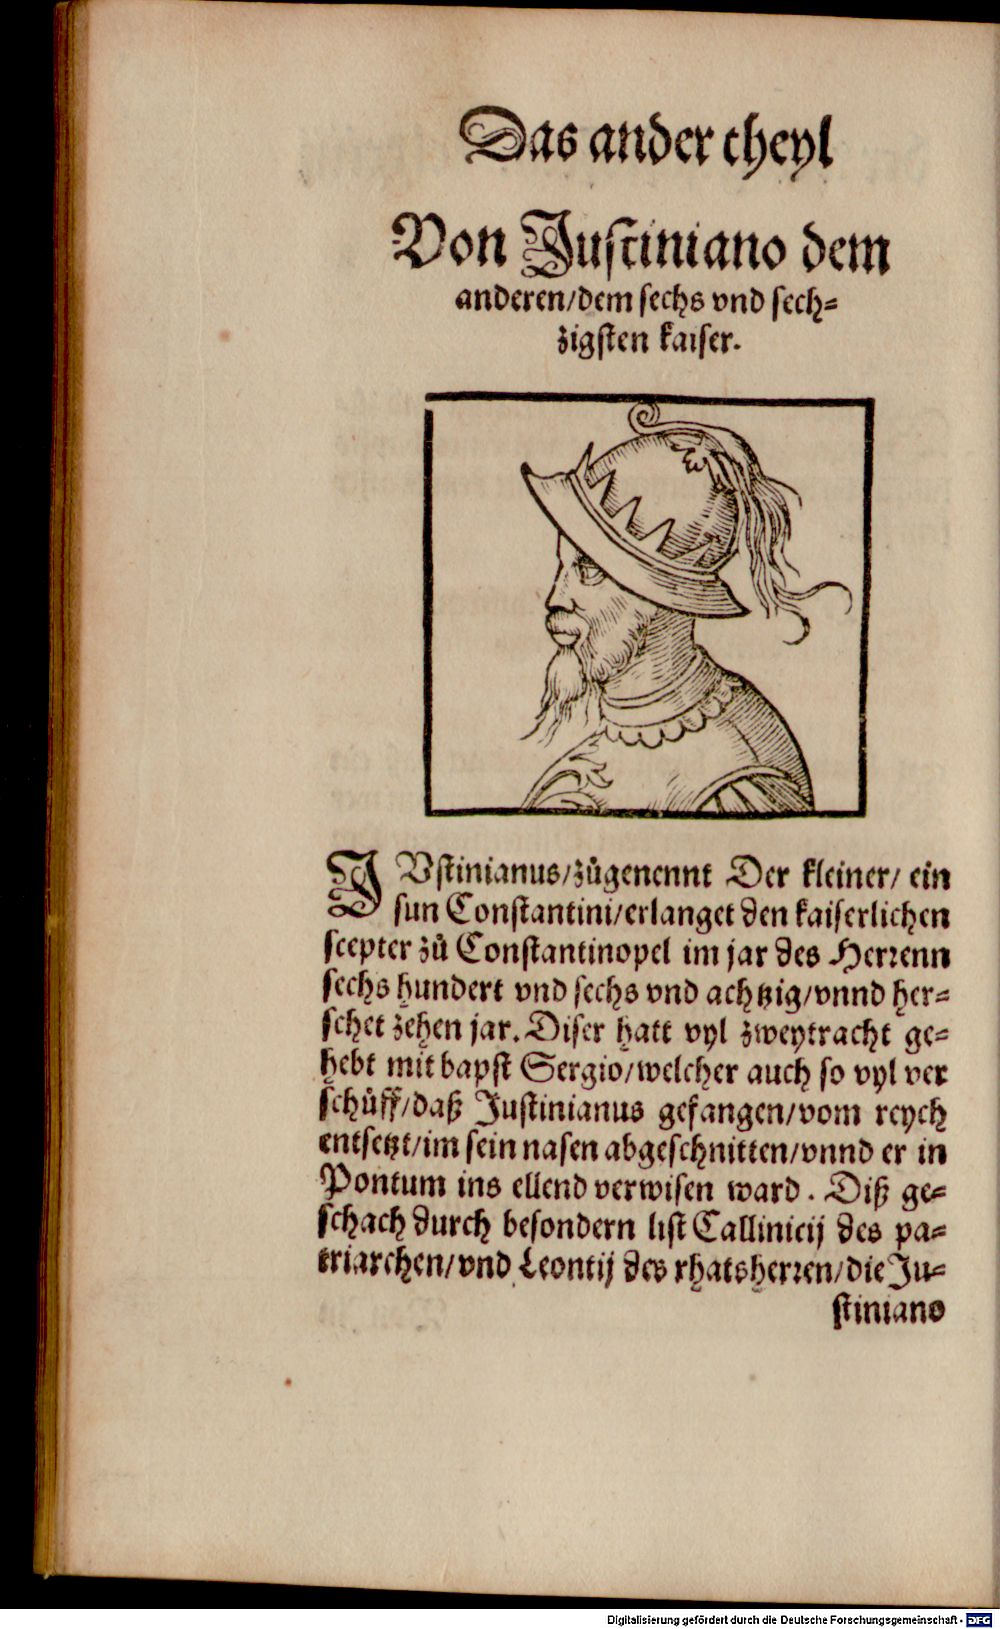 Das ander theyl
Von Justiniano dem
anderen/dem sechs vnd sech⸗
zigsten kaiser.
JVstinianus/zůgenennt Der kleiner/ ein
sun Constantini/erlanget den kaiserlichen
scepter zů Constantinopel im jar des Herrenn
sechs hundert vnd sechs vnd achtzig/vnnd her⸗
schet zehen jar. Diser hatt vyl zweytracht ge⸗
hebt mit bapst Sergio/welcher auch so vyl ver
schůff/daß Justinianus gefangen/vom reych
entsetzt/im sein nasen abgeschnitten/vnnd er in
Pontum ins ellend verwisen ward. Diß ge⸗
schach durch besondern list Callinicij des pa⸗
triarchen/vnd Leontij des rhatsherren/die Ju⸗
stiniano
Digitalisierung gefördert durch die Deutsche Forschungsgemeinschaft - DFG